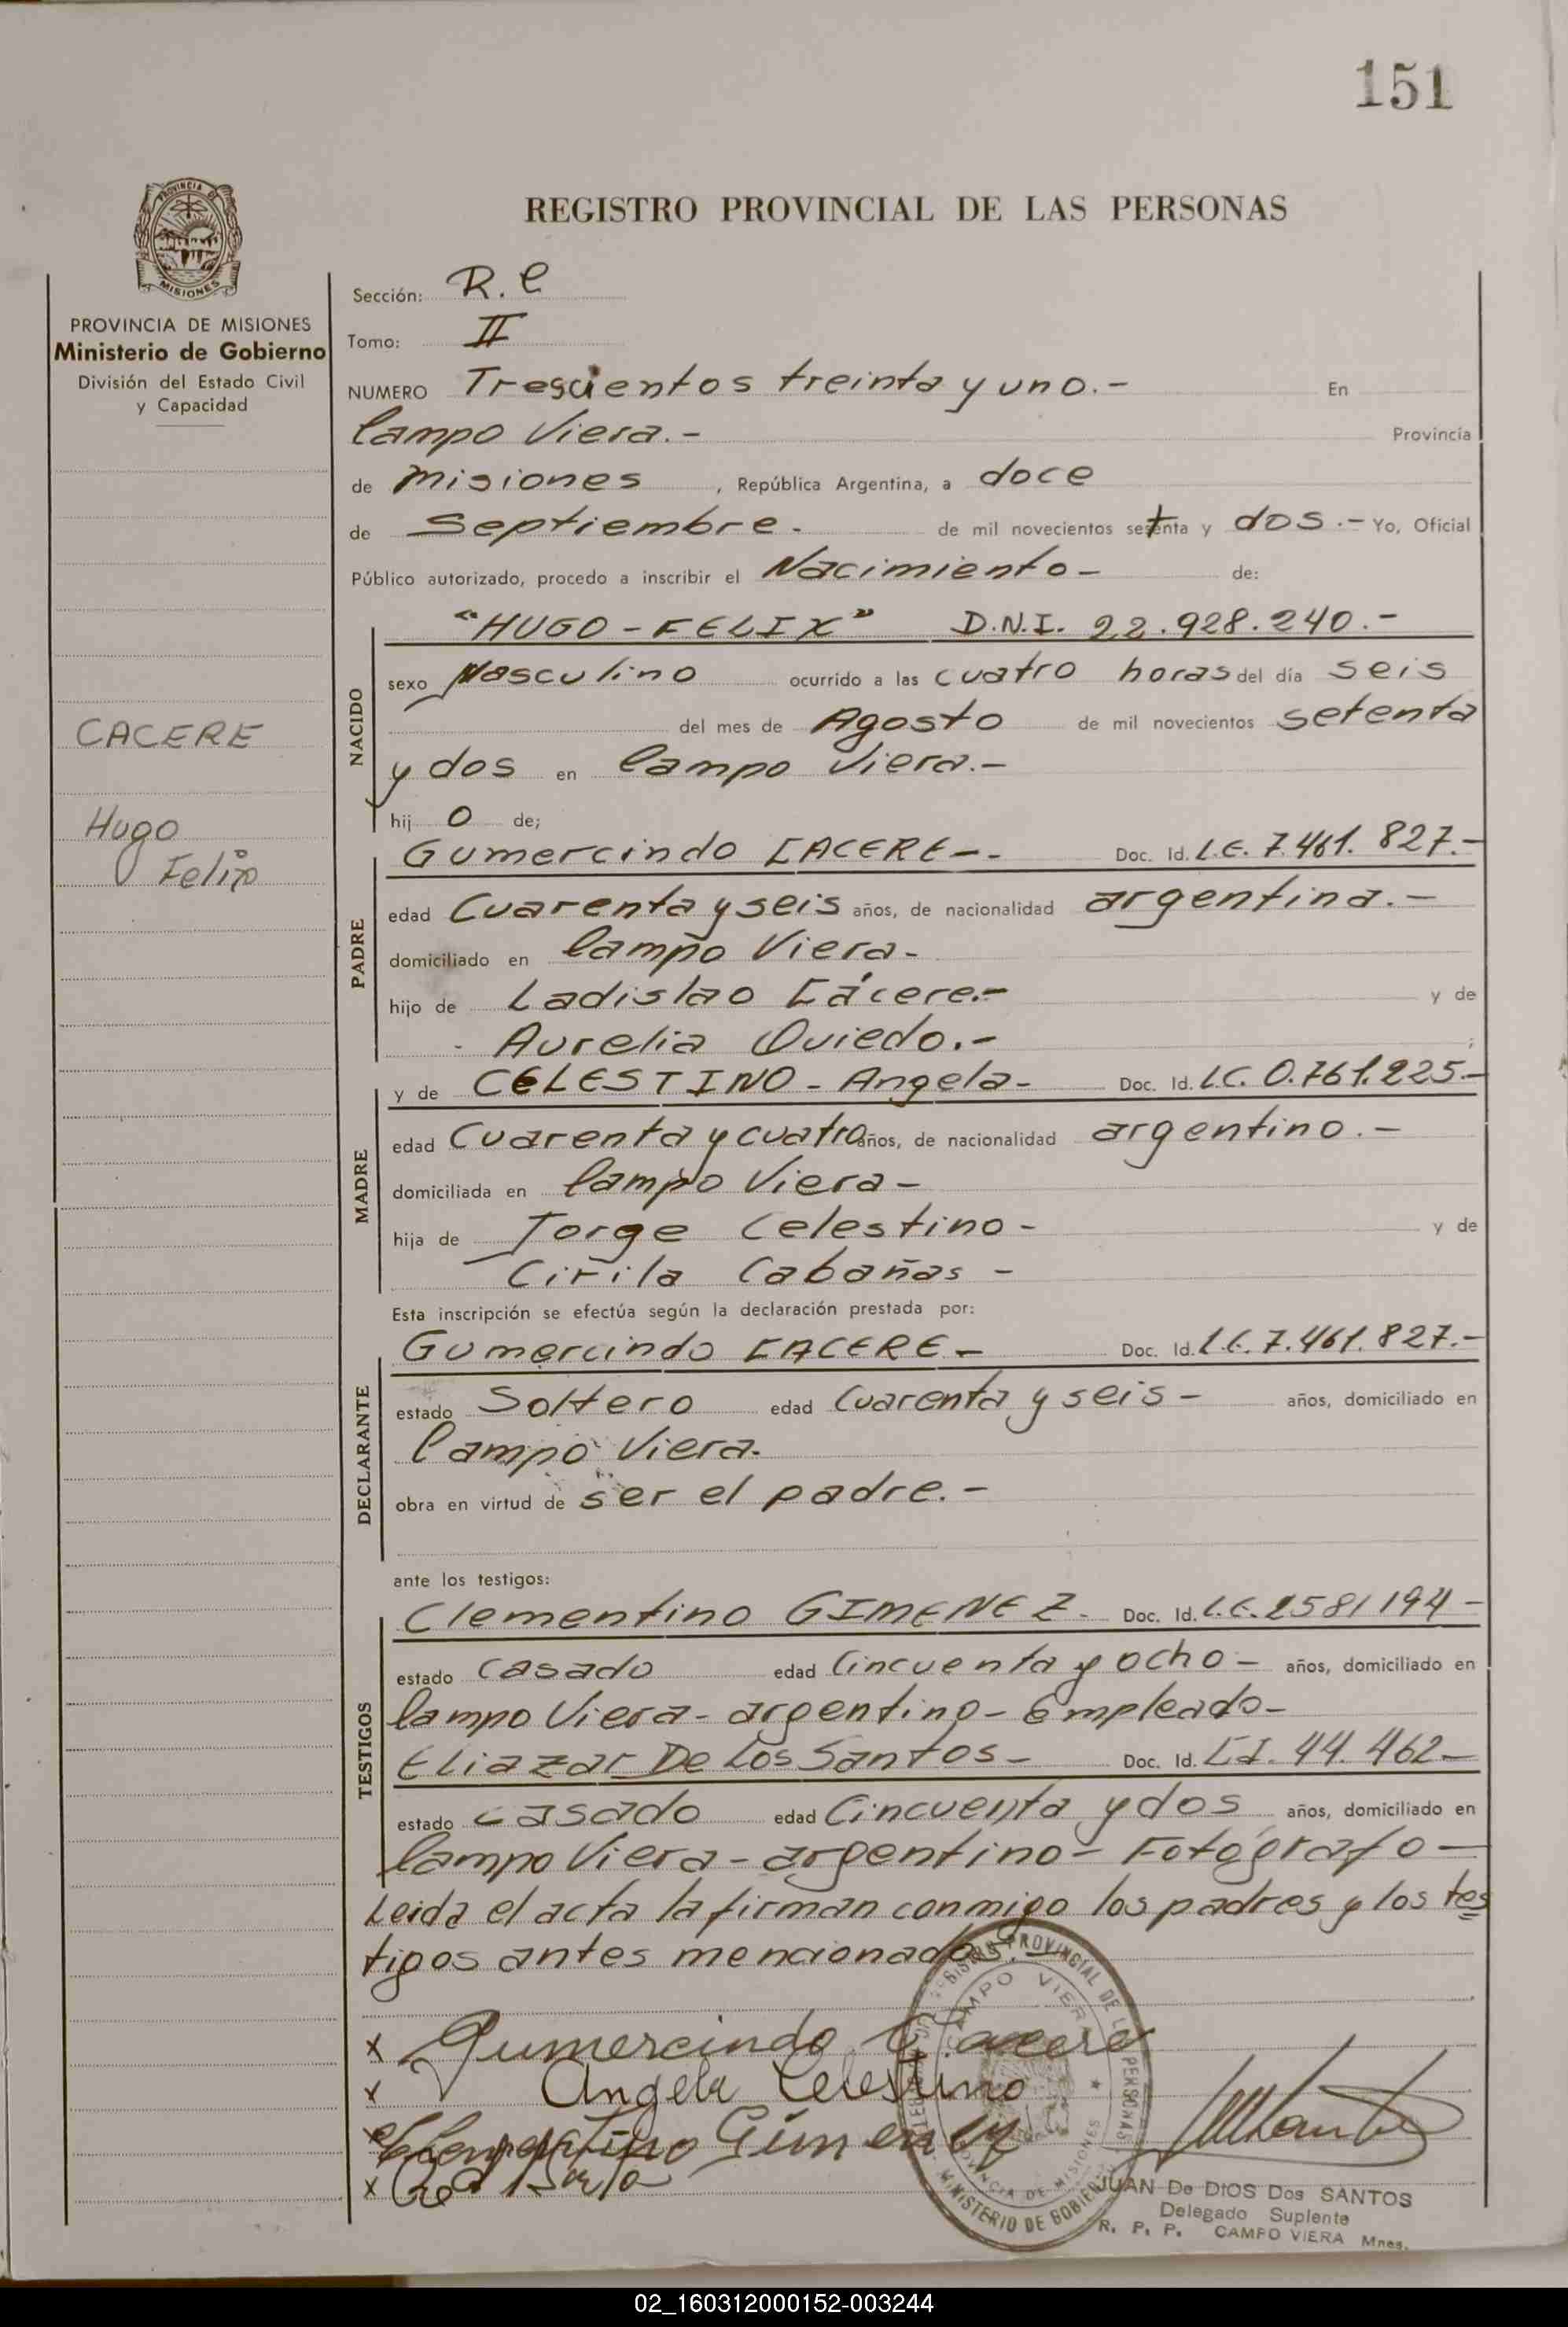 151
REGISTRO PROVINCIAL DE LAS PERSONAS
PROVINCIA DE MISIONES
PROVINCIA DE MISIONES
Ministerio de Gobierno
División del Estado Civil
y Capacidad
CACERE
Hugo
Felix
Sección: R. C
Tomo: II
NUMERO Trescientos treinta y uno.- En
Campo Viera.- Provincia
de Misiones , República Argentina, a doce
de Septiembre.- de mil novecientos setenta y dos.- Yo, Oficial
Público autorizado, procedo a inscribir el Nacimiento- de:
NACIDO
"HUGO - FELIX" D.N.I. 22.928.240.-
sexo Masculino ocurrido a las cuatro horas del día seis
del mes de Agosto de mil novecientos setenta
y dos en Campo Viera.-
hij o de;
PADRE
Gumercindo CACERE-- Doc. Id. L.E. 7.461.827.-
edad Cuarenta y seis años, de nacionalidad argentina.-
domiciliado en Campo Viera-
hijo de Ladislao Cácere.- y de
- Aurelia Oviedo.- ;
MADRE
y de CELESTINO - Angela- Doc. Id. L.C. 0.761.225.-
edad Cuarenta y cuatro años, de nacionalidad argentino.-
domiciliada en Campo Viera-
hija de Jorge Celestino- y de
Cirila Cabañas -
Esta inscripción se efectúa según la declaración prestada por:
DECLARANTE
Gumercindo CACERE- Doc. Id. L.E. 7.461.827.-
estado Soltero edad Cuarenta y seis- años, domiciliado en
Campo Viera.
obra en virtud de ser el padre.-
ante los testigos:
TESTIGOS
Clementino GIMENEZ- Doc. Id. L.E. 2581194-
estado Casado edad Cincuenta y ocho- años, domiciliado en
Campo Viera- argentino- Empleado-
Eliazar De Los Santos- Doc. Id. C.I. 44.462-
estado casado edad Cincuenta y dos años, domiciliado en
Campo Viera- argentino- Fotógrafo-
Leida el acta la firman conmigo los padres y los tes
tigos antes mencionados.-
REGISTRO PROVINCIAL DE LAS PERSONAS
CAMPO VIERA
PROVINCIA DE MISIONES
MINISTERIO DE GOBIERNO
x Gumercindo Cacere
x Angela Celestino
x Clementino Gimenez
x
JUAN De DIOS Dos SANTOS
Delegado Suplente
R. P. P. CAMPO VIERA Mnes.
02_160312000152-003244